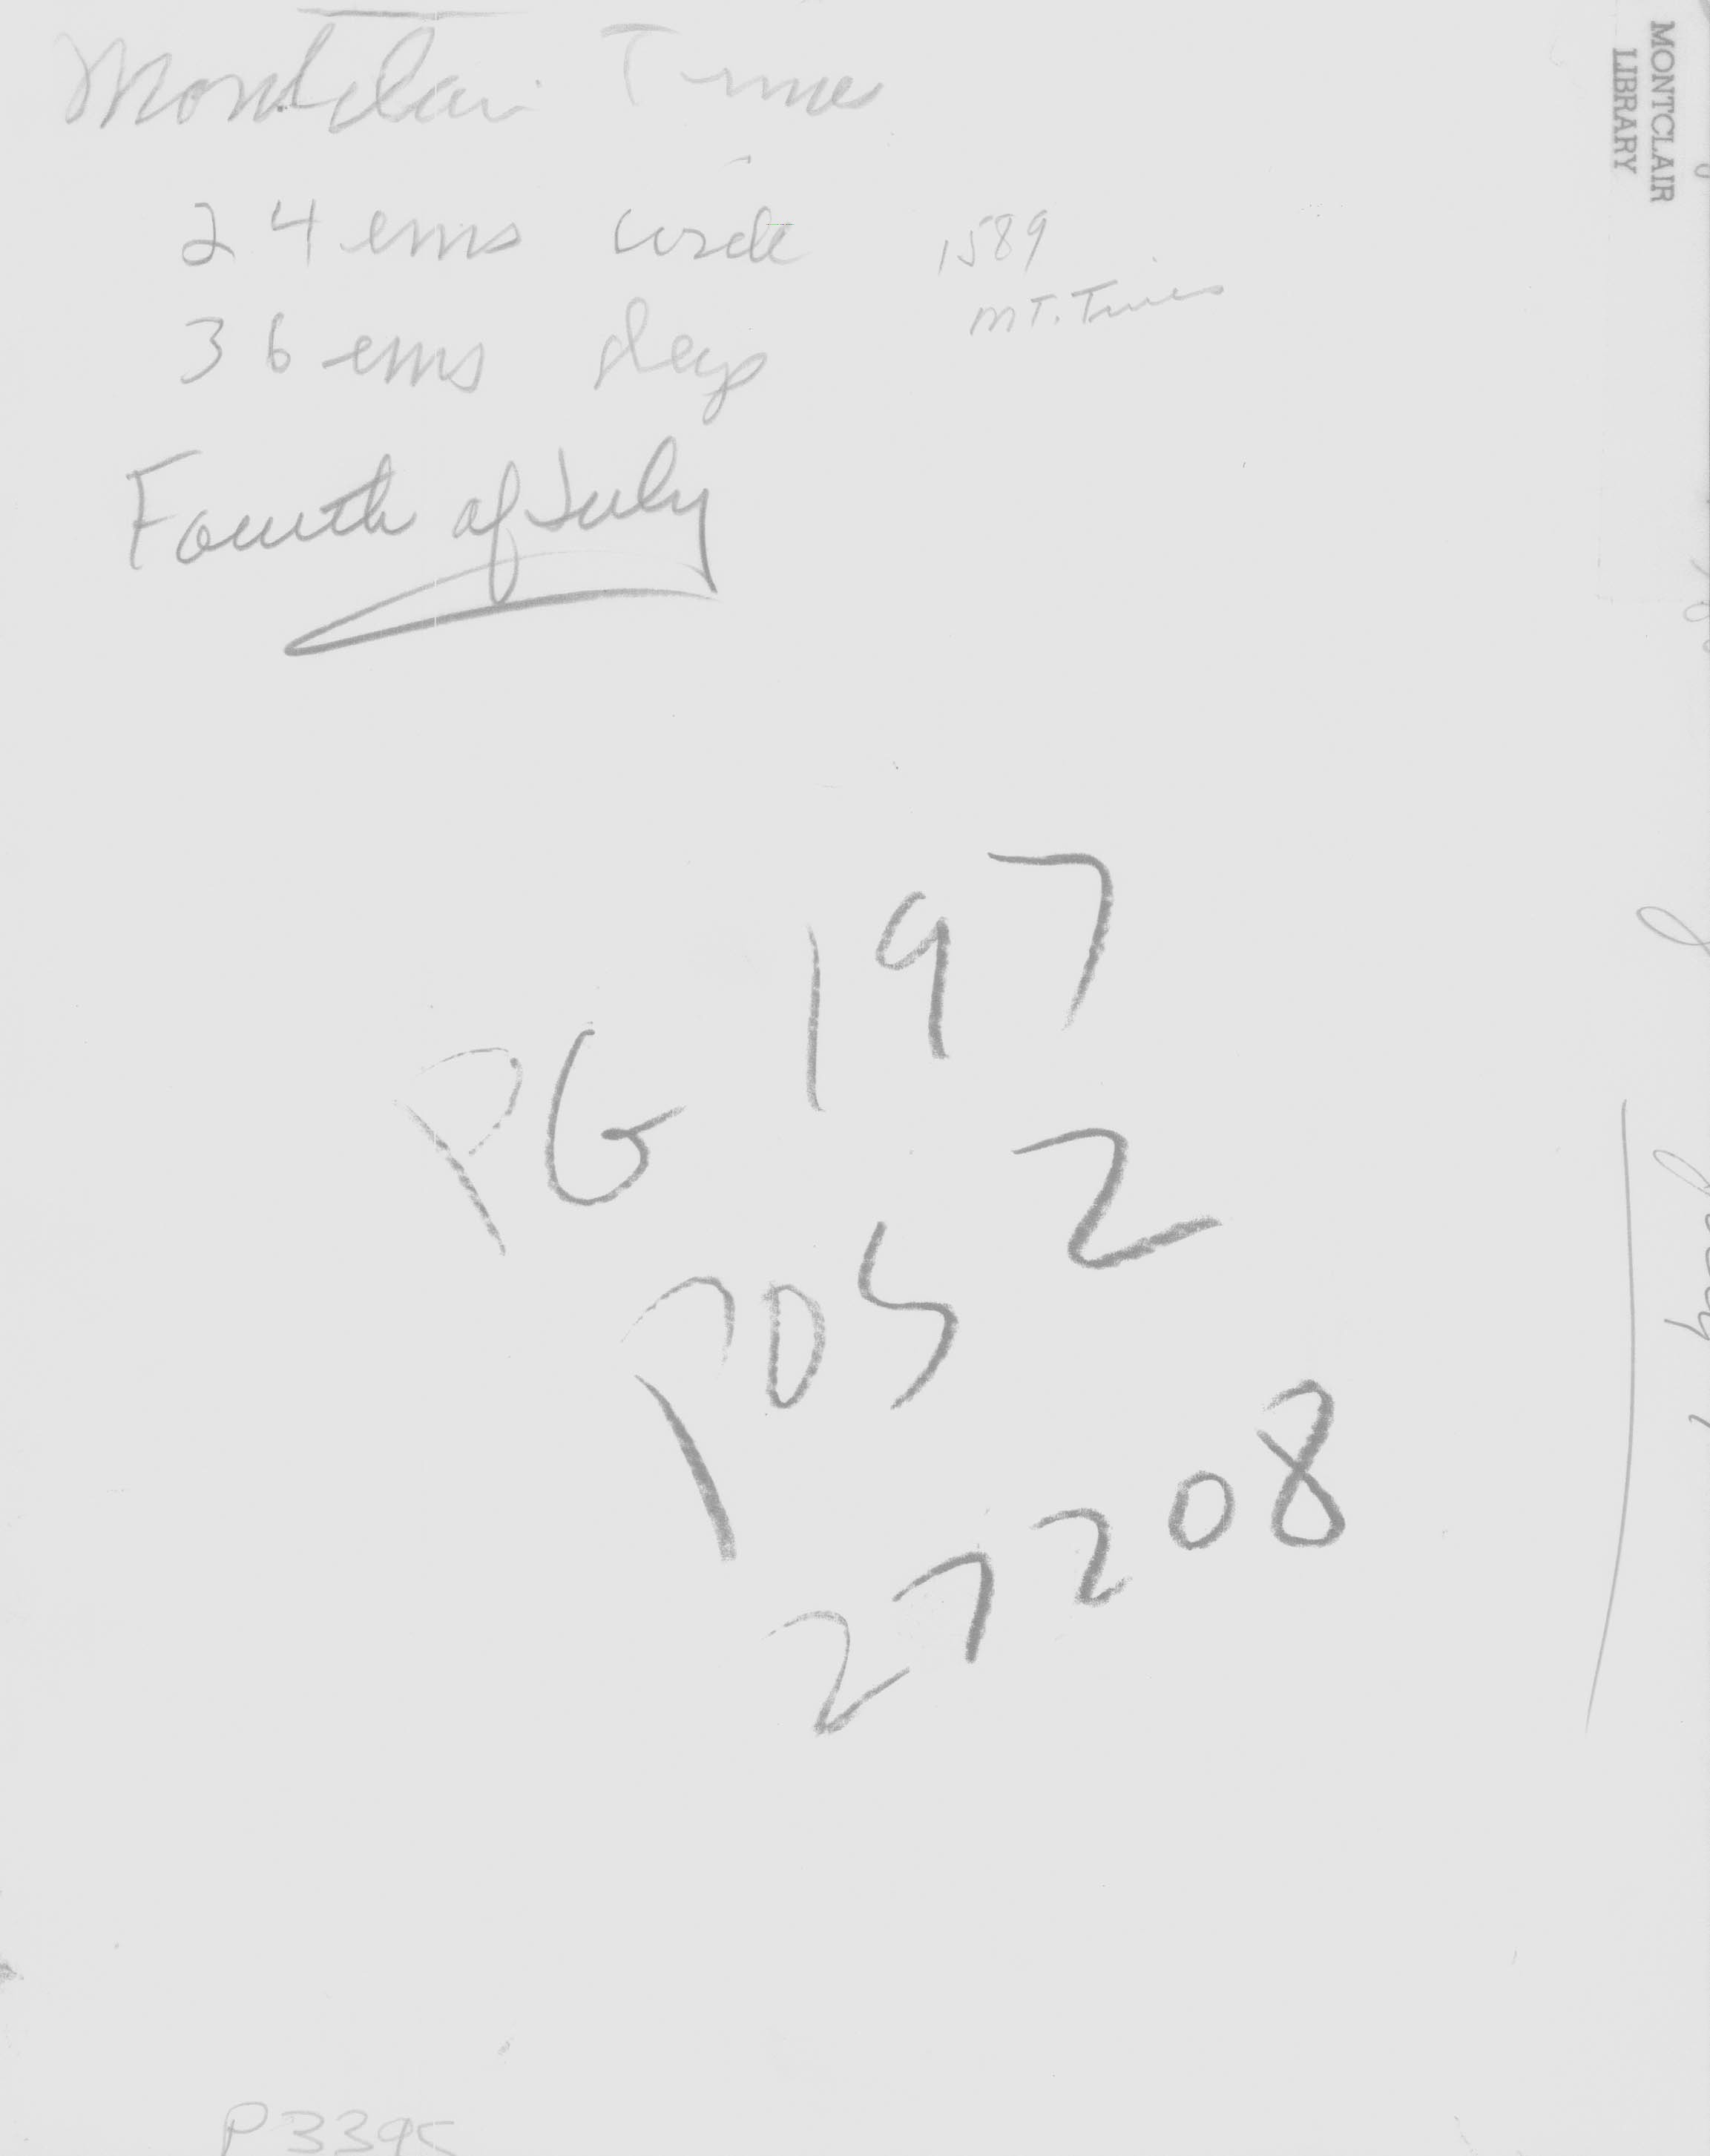 Montclair Times
24 ems wide
36 ems deep
1589
MT. Times
Fourth of July
PG 197
POS 2
27208
P3395
MONTCLAIR
LIBRARY